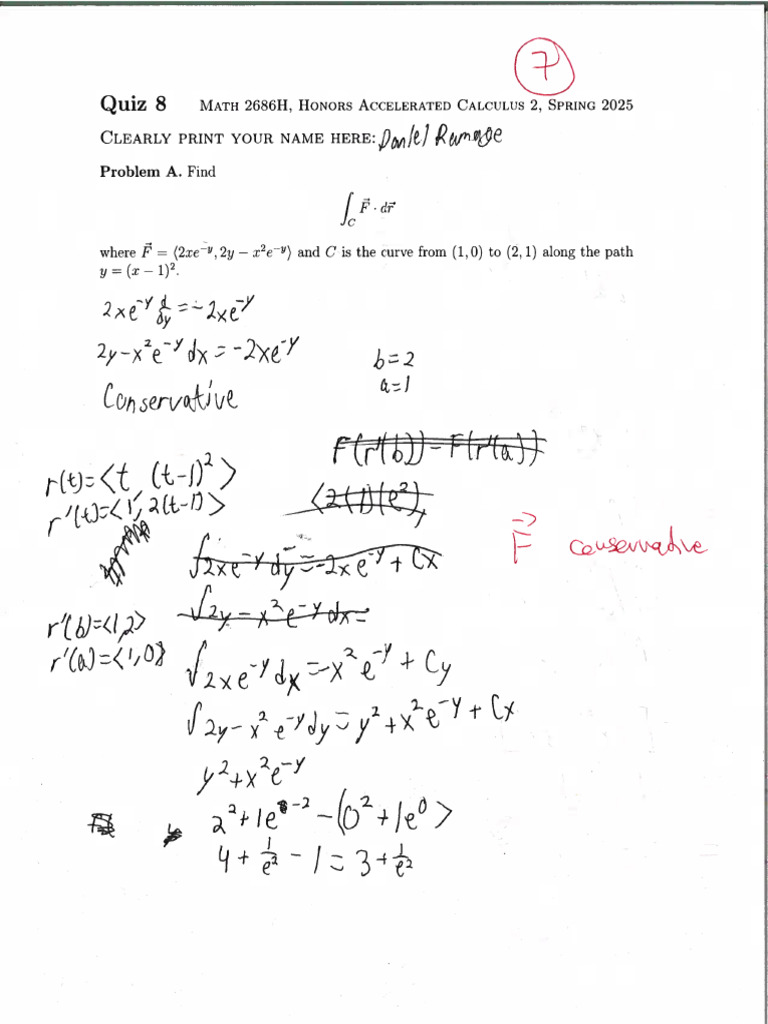 7
Quiz 8 MATH 2686H, HONORS ACCELERATED CALCULUS 2, SPRING 2025
CLEARLY PRINT YOUR NAME HERE: Daniel Ramage
Problem A. Find
∫_C F⃗ · dr⃗
where F⃗ = ⟨2xe^{-y}, 2y − x^2e^{-y}⟩ and C is the curve from (1, 0) to (2, 1) along the path
y = (x − 1)^2.
2xe^{-y} d/dy = -2xe^{-y}
2y-x^2e^{-y} dx = -2xe^{-y}
Conservative
b=2
a=1
F(r'(b)) - F(r'(a))
⟨2(1)(e^2),
r(t)=⟨t, (t-1)^2⟩
r'(t)=⟨1, 2(t-1)⟩
∫2xe^{-y} dy = -2xe^{-y} + Cx
∫2y - x^2e^{-y} dx =
F⃗ conservative
r'(b)=⟨1,2⟩
r'(a)=⟨1,0⟩
∫2xe^{-y} dx = x^2e^{-y} + Cy
∫2y-x^2e^{-y} dy = y^2+x^2e^{-y} + Cx
y^2+x^2e^{-y}
2^2+1e^{-2} - (0^2+1e^0⟩
4 + 1/e^2 - 1 = 3 + 1/e^2